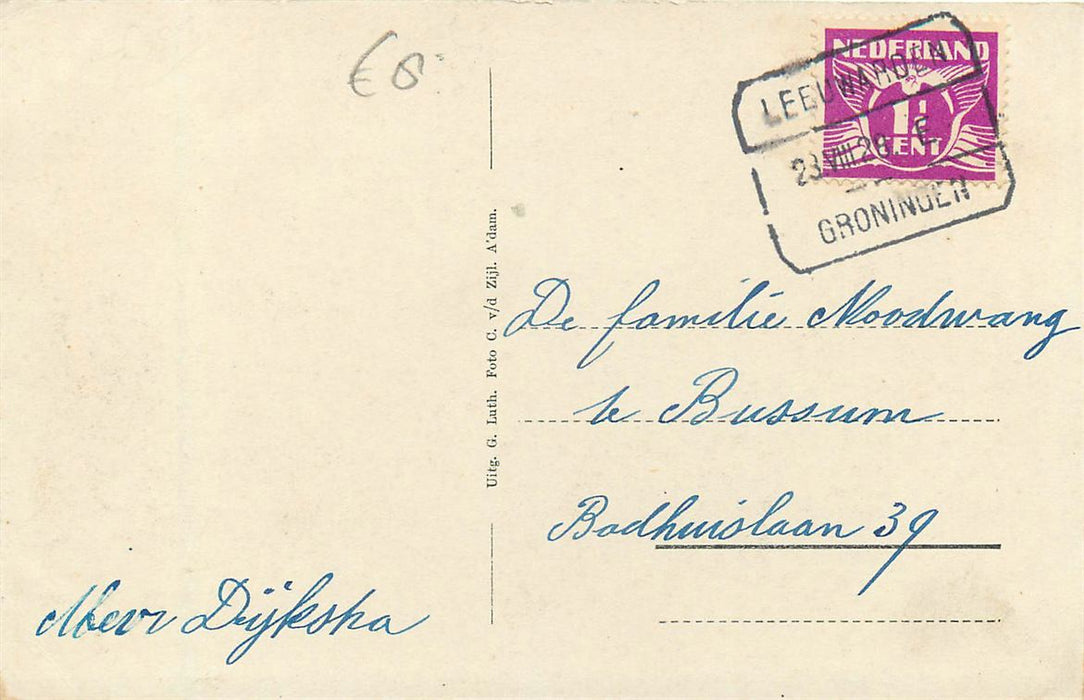 €6
NEDERLAND
1½
CENT
LEEUWARDEN
23.VIII.28 E
GRONINGEN
Uitg. G. Luth. Foto C. v/d Zijl. A'dam.
De familie Noodwang
te Bussum
Badhuislaan 39
Mevr Dijkstra